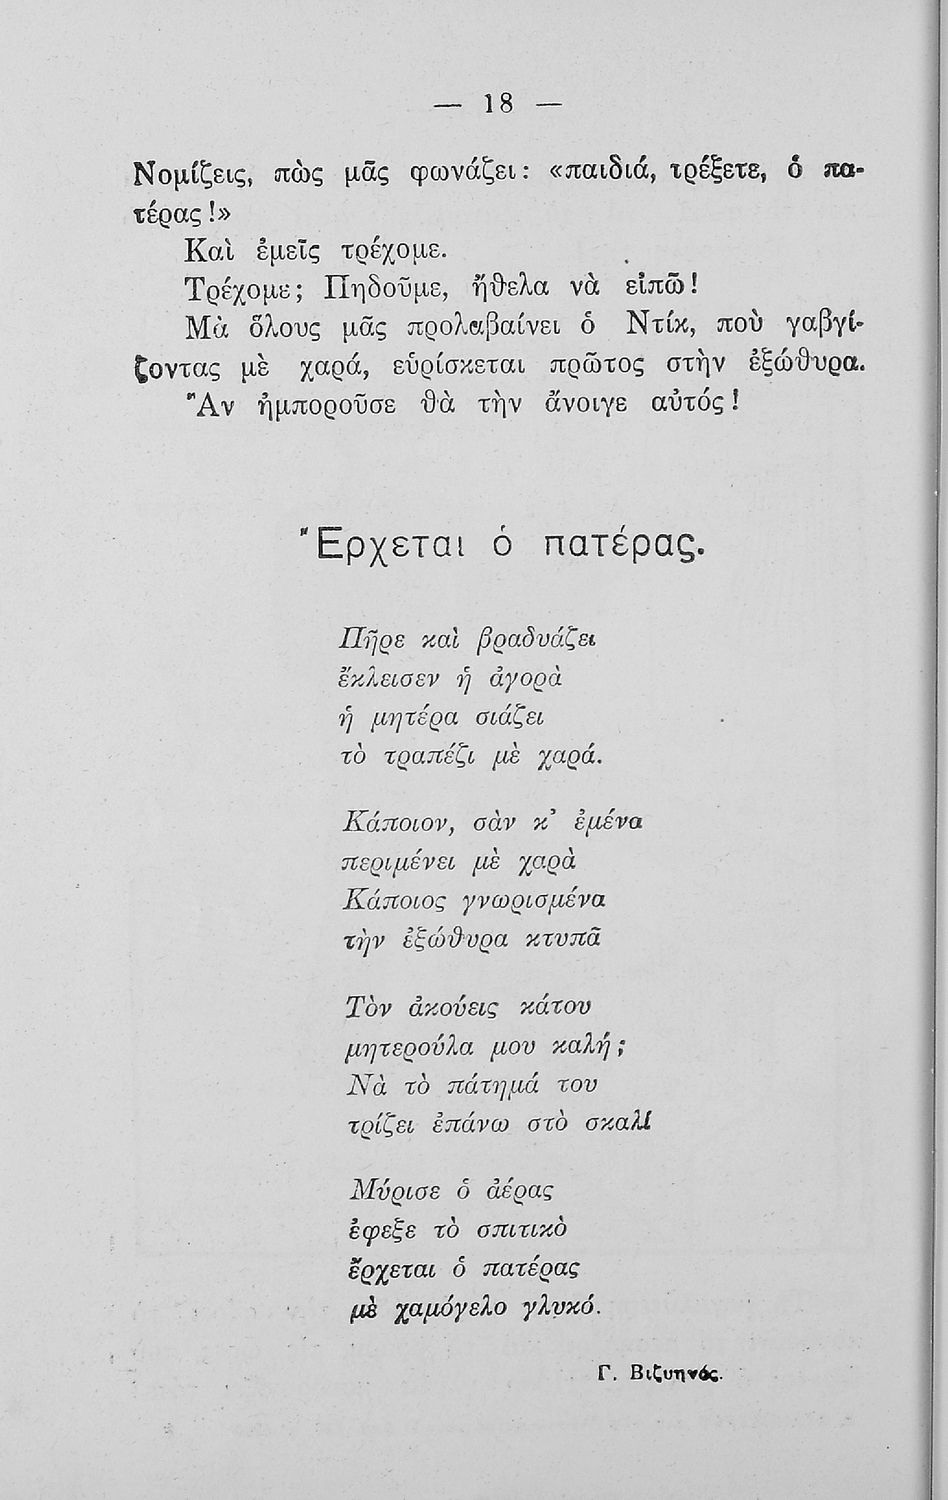 — 18 —
Νομίζεις, πὼς μᾶς φωνάζει: «παιδιά, τρέξετε, ὁ πα-
τέρας!»
Καὶ ἐμεῖς τρέχομε.
Τρέχομε; Πηδοῦμε, ἤθελα νὰ εἰπῶ!
Μὰ ὅλους μᾶς προλαβαίνει ὁ Ντίκ, ποὺ γαβγί-
ζοντας μὲ χαρά, εὑρίσκεται πρῶτος στὴν ἐξώθυρα.
Ἂν ἠμποροῦσε θὰ τὴν ἄνοιγε αὐτός!
Ἔρχεται ὁ πατέρας.
Πῆρε καὶ βραδυάζει
ἔκλεισεν ἡ ἀγορὰ
ἡ μητέρα σιάζει
τὸ τραπέζι μὲ χαρά.
Κάποιον, σὰν κ' ἐμένα
περιμένει μὲ χαρὰ
Κάποιος γνωρισμένα
τὴν ἐξώθυρα κτυπᾶ
Τὸν ἀκούεις κάτου
μητερούλα μου καλή;
Νὰ τὸ πάτημά του
τρίζει ἐπάνω στὸ σκαλί
Μύρισε ὁ ἀέρας
ἐφεξε τὸ σπιτικὸ
ἔρχεται ὁ πατέρας
μὲ χαμόγελο γλυκό.
Γ. Βιζυηνός.